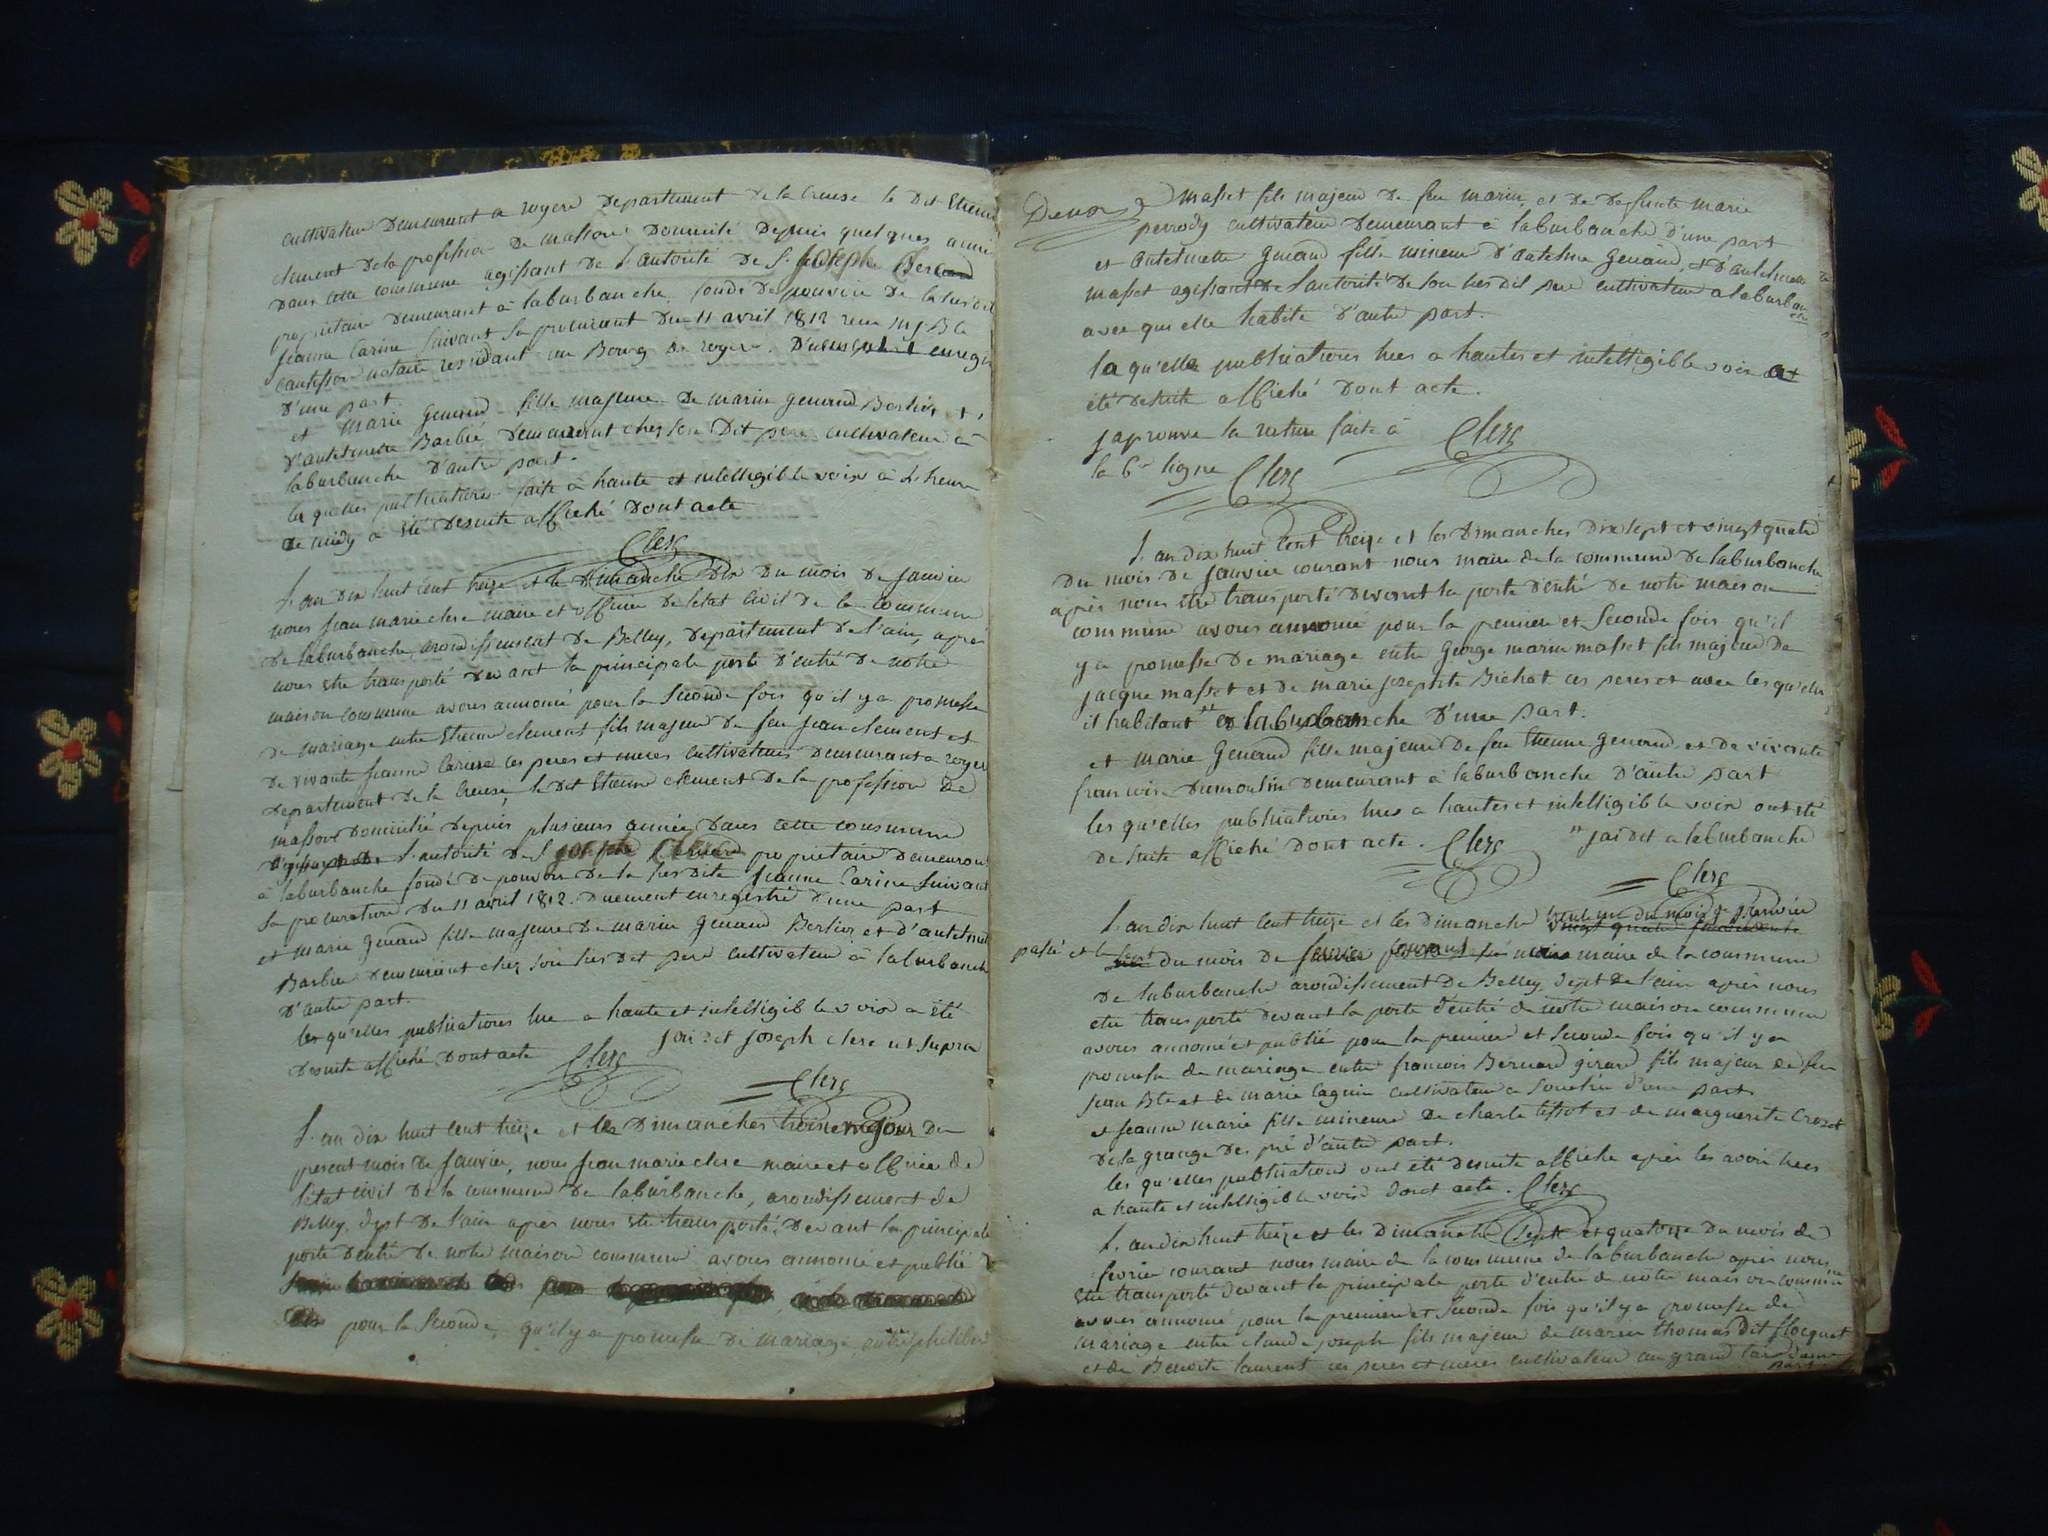 cultivateur demeurant a royere departement de la Creuse le dit Etienne
clement de la profession de masson domicilié depuis quelques anné
dans cette commune agissant de l'autorité de S. Joseph
propriétaire demeurant à laburbanche, fondé de pouvoir de la
jeanne Carine suivant sa procuration du 11 avril 1812 recue
notaire residant au Bourg de royere. enregis
d'une part.
et marie genaud fille majeure de marin genaud Berlioz et
d'antelmette Barbié, demeurant chez son dit pere cultivateur à
laburbanche d'autre part.
les quelles publications faite à haute et intelligible voix à l'heure
de midy a été desuite affiché dont acte
Clerc
L'an dix huit cent treize et le dimanche dix du mois de janvier
nous jean marie clerc maire et officier de letat civil de la commune
de laburbanche arondissement de Belley, departement de l'ain, apres
nous etre transporté devant la principale porte d'entré de notre
maison commune avons annoncé pour la seconde fois qu'il y a promesse
de mariage entre Etienne clement fils majeur de feu jean clement et
de vivante jeanne Carine ces peres et meres cultivateurs demeurant a royer
departement de la Creuse, le dit Etienne clement de la profession de
masson domicilié depuis plusieurs année dans cette commune
l'autorité de S joseph propriétaire demeuran
à laburbanche fondé de pouvoir de la susdite jeanne Carine suivant
sa procuration du 11 avril 1812. duement enregistré d'une part
et marie genaud fille majeure de marin genaud Berlioz et d'antelmet
Barbier demeurant chez son susdit pere cultivateur à laburbanch
d'autre part.
les qu'elles publications lue a haute et intelligible voix a été
desuite affiché dont acte Clerc j'ai dit joseph clerc ut supra
Clerc
L'an dix huit cent treize et les dimanches jour du
present mois de janvier, nous jean marie clerc maire et officier de
létat civil de la commune de laburbanche, arondissement de
Belley, dept de l'ain après nous etre transporté devant la principale
porte d'entré de notre maison commune avons annoncé et publié
pour la seconde, qu'il y a promesse de mariage entre philibert
masset fils majeur de feu marin, et de defunte marie
perrody cultivateur demeurant à laburbanche d'une part
et antelmette genaud fille mineure d'antelme genaud, et d'antelmette
masset agissant de l'autorité de son susdit pere cultivateur a laburban
che
avec qui elle habite d'autre part.
la qu'elle publications lues a hautes et intelligible voix a
été desuite affiché dont acte.
japrouve la rature faite à Clerc
la 6e ligne Clerc
L'an dix huit cent treize et les dimanches dix sept et vingt quatre
du mois de janvier courant nous maire de la commune de laburbanche
après nous être transporté devant la porte d'entré de notre maison
commune avons annoncé pour la premiere et seconde fois qu'il
y a promesse de mariage entre george marin masset fils majeur de
jacque masset et de marie josephte Bichat ces peres et avec les qu'elles
il habitant a laburbanche d'une part.
et marie genaud fille majeure de feu Etienne genaud et de vivante
francoise dumoulin demeurant à laburbanche d'autre part
les qu'elles publications lues a hautes et intelligible voix ont été
de suite affiché dont acte. Clerc j'ai dit a laburbanche
Clerc
L'an dix huit cent treize et les dimanche trente un du mois de janvier
passé et le sept du mois de maire de la commune
de laburbanche arondissement de Belley dept de l'ain après nous
etre transporté devant la porte d'entré de notre maison commune
avons annoncé et publié pour la premiere et seconde fois qu'il y a
promesse de mariage entre francois Bernard girard fils majeur de feu
jean Bte et de marie cultivateur a d'une part
et jeanne marie fille mineure de charle tissot et de marguerite Crozet
de la grange des pré d'autre part.
les qu'elles publication ont été desuite affiche après les avoir lues
a haute et intelligible voix dont acte. Clerc
L'an dix huit treize et les dimanche sept et quatorze du mois de
fevrier courant nous maire de la commune de laburbanche après nous
etre transporté devant la principale porte d'entré de notre maison commune
avons annoncé pour la premiere et seconde fois qu'il y a promesse de
mariage entre claude joseph fils majeur de marin thomas dit flocquet
et de Benoite laurent ces peres et meres cultivateur au grand d'une
part